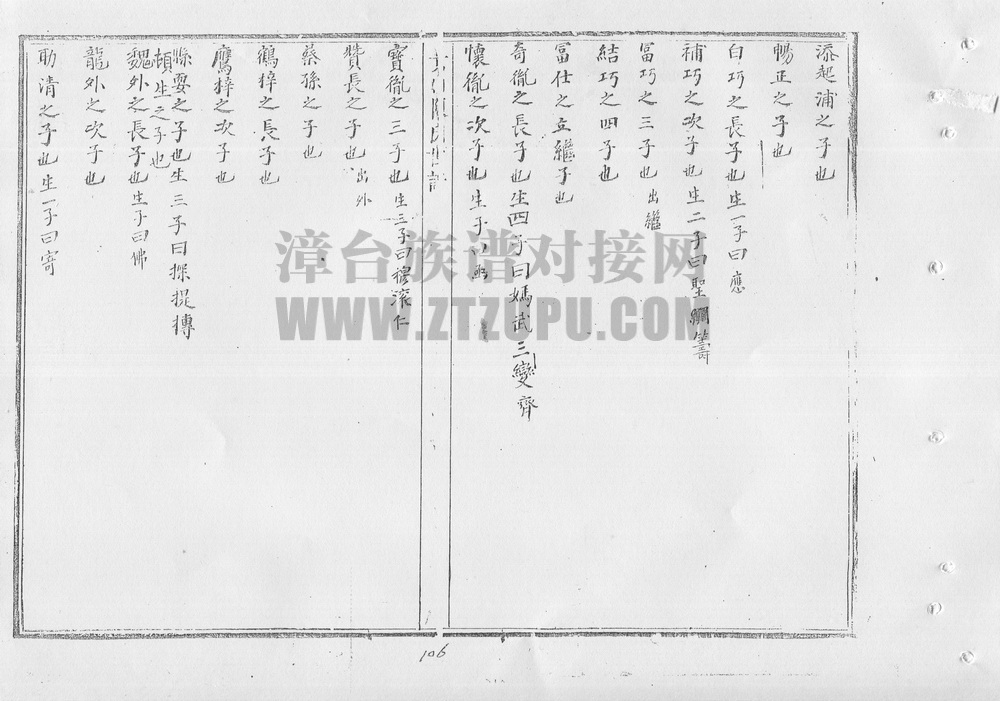 添起浦之子也
暢正之子也
白巧之長子也生一子曰應
補巧之次子也生二子曰聖 籌
富巧之三子也出繼
結巧之四子也
富仕之立繼子也
奇胤之長子也生四子曰媽武三變齊
懷胤之次子也生子
寶胤之三子也生三子曰穆滚仁
贊長之子也出外
蔡孫之子也
鶴梓之長子也
鷹梓之次子也
縣要之子也生三子曰探提摶
頓生之子也
魏外之長子也生子曰佛
龍外之次子也
助清之子也生一子曰寄
漳台族谱对接网
WWW.ZTZUPU.COM
106